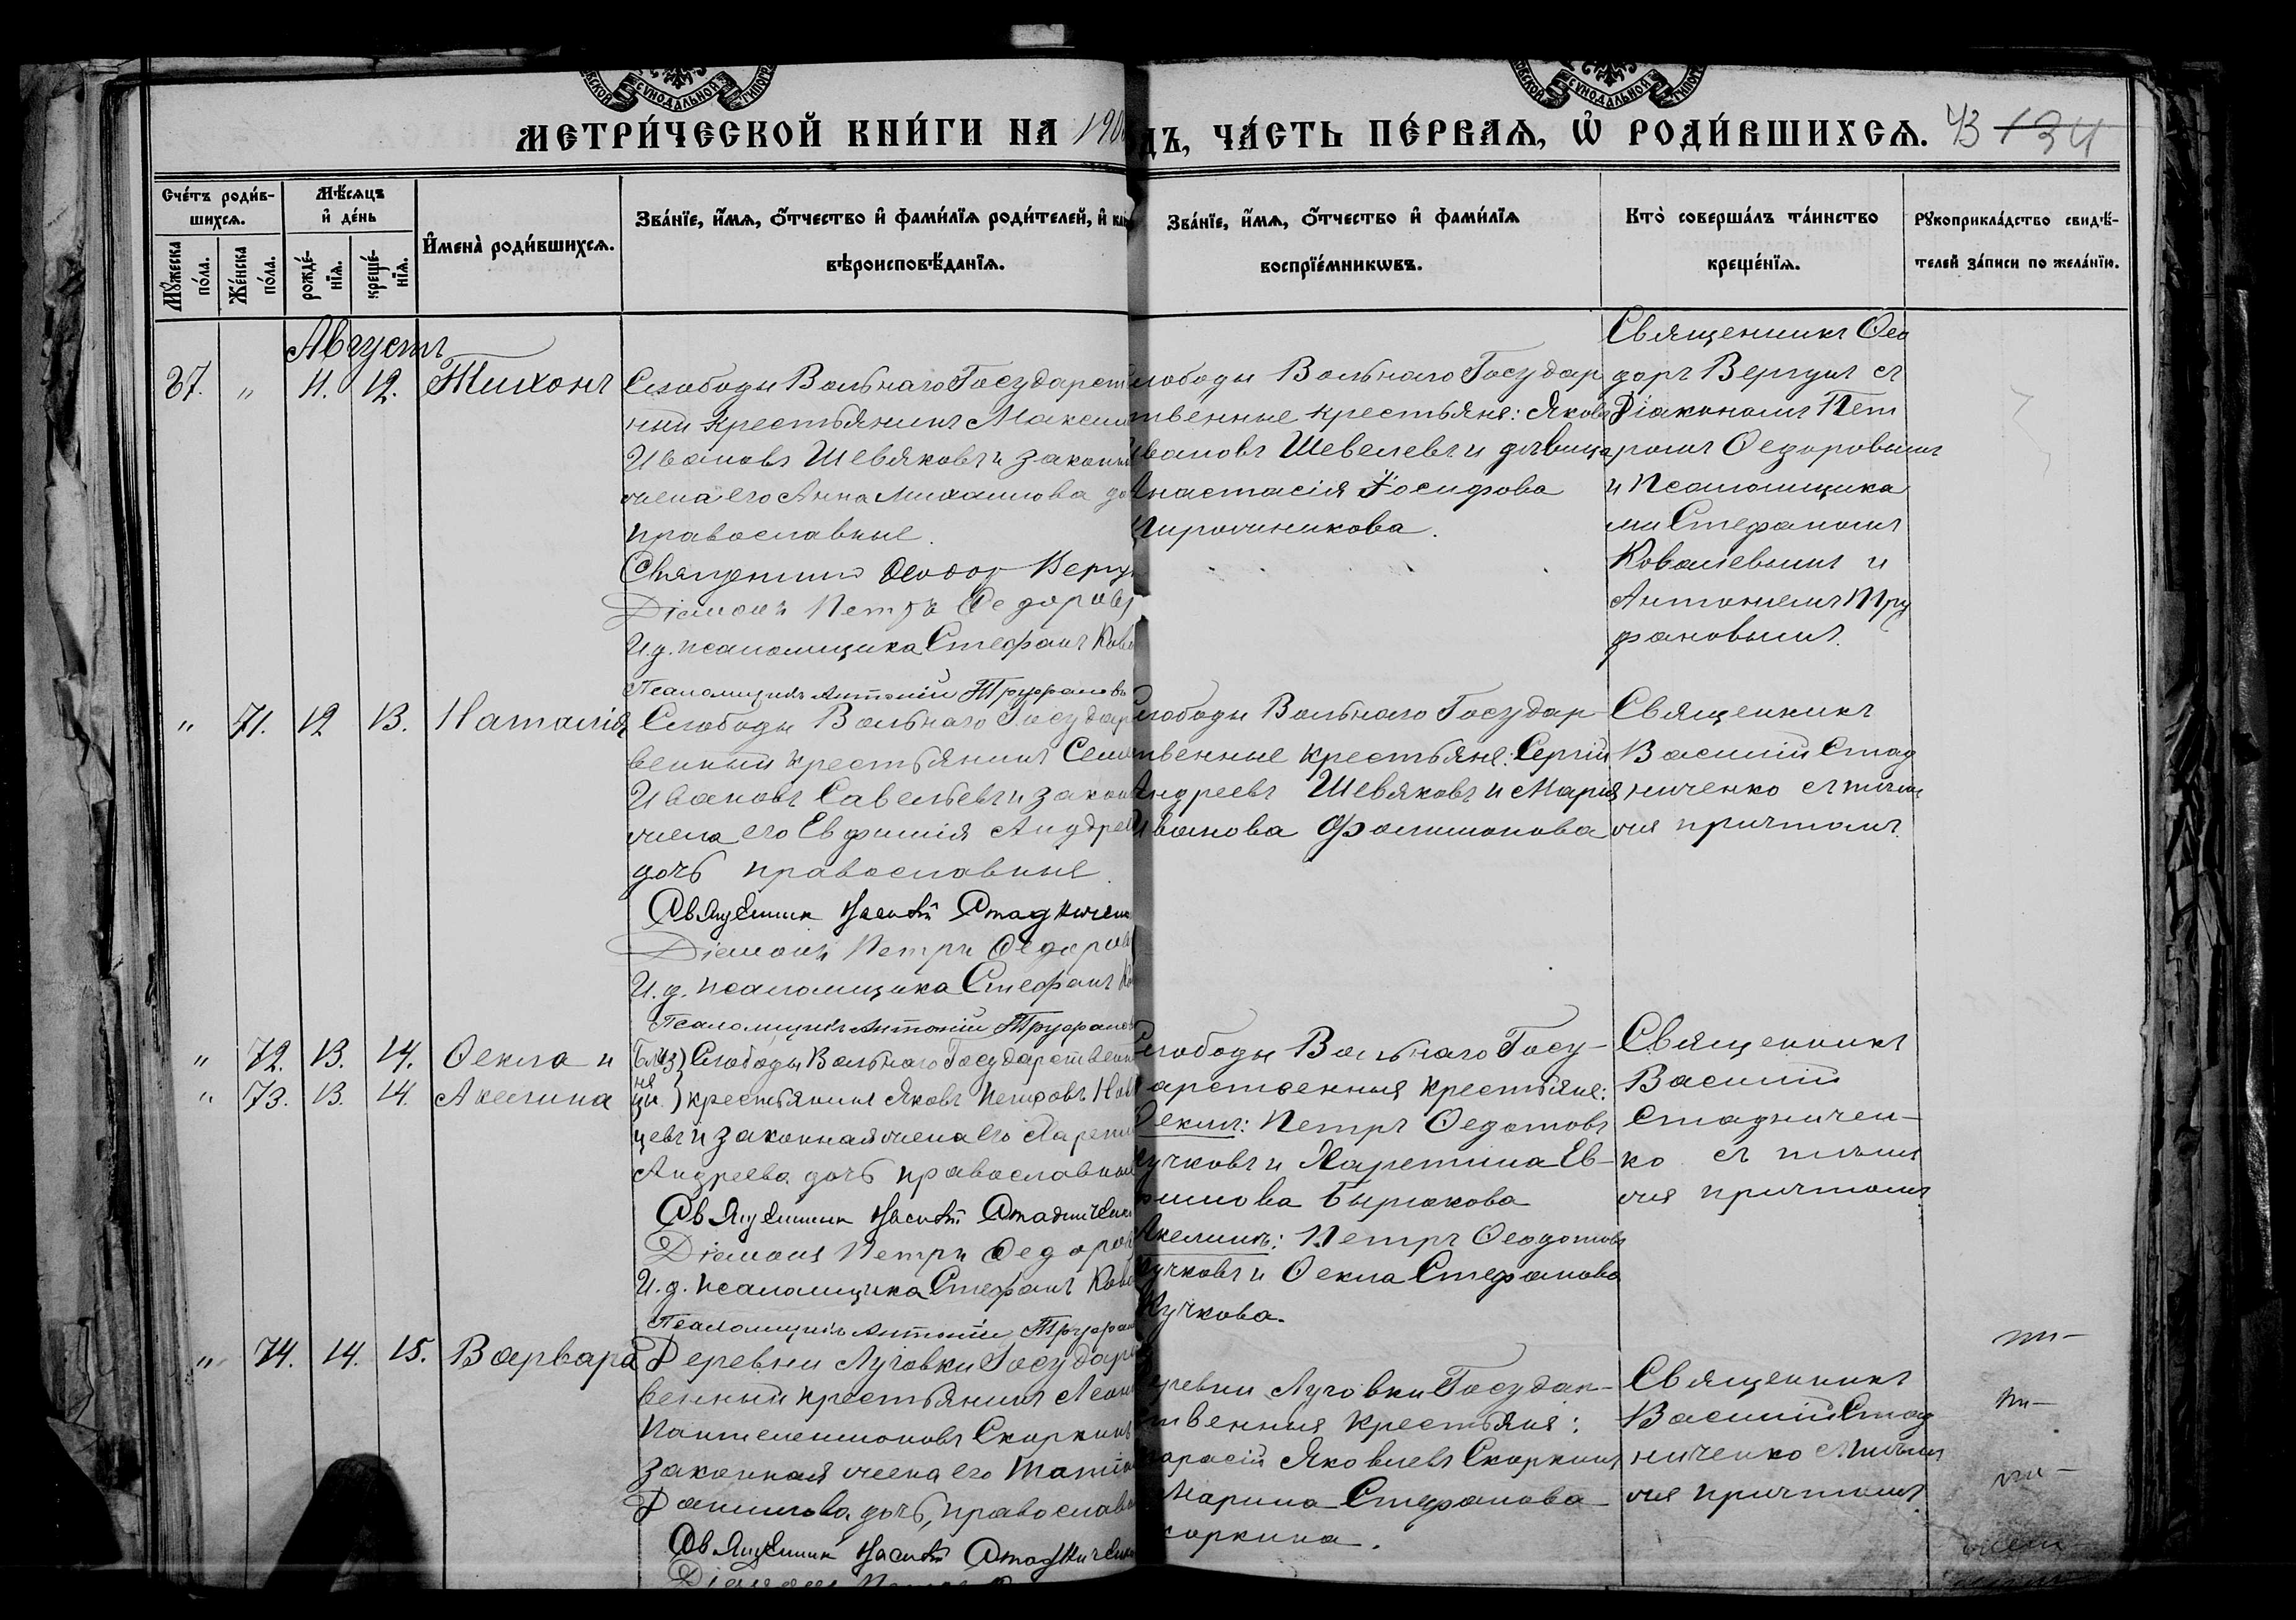 СѴНОДАЛЬНОЙ
СѴНОДАЛЬНОЙ
МЕТРИ́ЧЕСКОЙ КНИ́ГИ НА
ЧА́СТЬ ПЕ́РВАѦ, Ѡ҆ РОДИ́ВШИХСѦ.
134
Сче́тъ роди́в-
шихсѧ.
Мѣ́сѧцъ
и҆ де́нь
И҆мена̀ роди́вшихсѧ.
Зва́нїе, и҆́мѧ, ѻ҆́тчество и҆ фами́лїѧ роди́телей, и҆
вѣроисповѣ́данїѧ.
Мꙋ́жеска
по́ла.
Же́нска
по́ла.
рожде́-
нїѧ.
креще́-
нїѧ.
Зва́нїе, и҆́мѧ, ѻ҆́тчество и҆ фами́лїѧ
воспрїе́мникѡвъ.
Кто̀ соверша́лъ та́инство
креще́нїѧ.
Рꙋкоприкла́дство свидѣ́-
телей за́писи по жела́нїю.
Августъ
37. " 11. 12. Тихонъ
Слободы Вольнаго Государст
ный крестьянинъ Максим
Ивановъ Шевяковъ и законн
жена его Анна Михаилова до
православные.
Священникъ Ѳеодор Вергу
Діаконъ Петръ Ѳедоров
И.д. псаломщика Стефанъ Ков
Псаломщикъ Антоній Труфановъ
лободы Вольнаго Государ
твенные крестьяне: Яковъ
Ивановъ Шевелевъ и дѣвица
Анастасія Іосифова
Священникъ Ѳео
доръ Вергунъ съ
Діакономъ Пет
ромъ Ѳедоровымъ
и Псаломщика
ми Стефаномъ
Ковалевымъ и
Антоніемъ Тру
фановымъ.
" 71. 12 13. Наталія
Слободы Вольнаго Государ
венный крестьянинъ Семе
Ивановъ Савельевъ и закон
жена его Евфимія Андрее
дочь православные.
Священник Василій Стадничен
Діаконъ Петръ Ѳедоров
И.д. псаломщика Стефанъ Ко
Псаломщикъ Антоній Труфанов
лободы Вольнаго Государ-
твенные крестьяне: Сергій
Андреевъ Шевяковъ и Марія
Иванова Филимонова
Священникъ
Василій Стад
ниченко съ тѣмъ
же причтомъ.
" 72. 13. 14. Ѳекла и
" 73. 13. 14. Акелина
Близ) Слободы Вольнаго Государствен
ня
цы.) крестьянинъ Яковъ
цевъ и законная жена его Харети
Андреева дочь православные
Священник Василій Стадниченк
Діаконъ Петръ Ѳедоров
И.д. псаломщика Стефанъ Кова
Псаломщикъ Антоній Труфан
лободы Вольнаго Госу-
дарственныя крестьяне:
Ѳеклы: Петръ Ѳедотовъ
Кучковъ и Харетина Ев-
фимова Бирюкова
Акелинъ: Петръ Ѳеодотовъ
Кучковъ и Ѳекла Стефанова
Кучкова.
Священникъ
Василій
Стадничен-
ко съ тѣмъ
же причтомъ
" 74. 14. 15. Варвара
Деревни Луговки Государ
венный крестьянинъ Леон
Пантелеимоновъ Скоркинъ
законная жена его Татіан
Данилова дочь, православн
Священник Василій Стадничен
еревни Луговки Государ-
твенныя крестьяне:
Тарасій Яковлевъ Скоркинъ
Марина Стефанова
коркина.
Священникъ
Василій Стад
ниченко съ тѣмъ
же причтомъ.